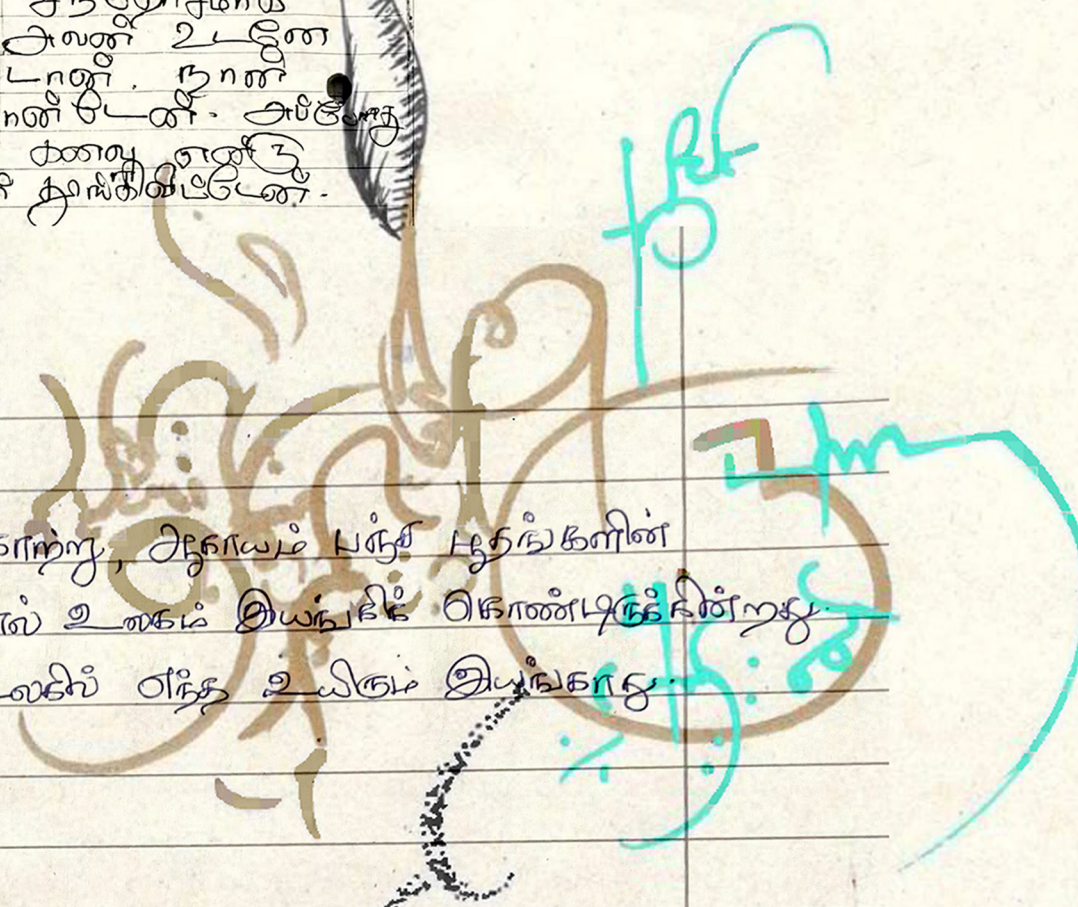 சந்தோசமாக
அவன் உடனே
டான். நான்
ான்டேன். அப்போது
கனவு என்று
தூங்கிவிட்டேன்.
காற்று, ஆகாயம் பஞ்ச பூதங்களின்
ால் உலகம் இயங்கிக் கொண்டிருக்கின்றது.
உலகில் எந்த உயிரும் இயங்காது.